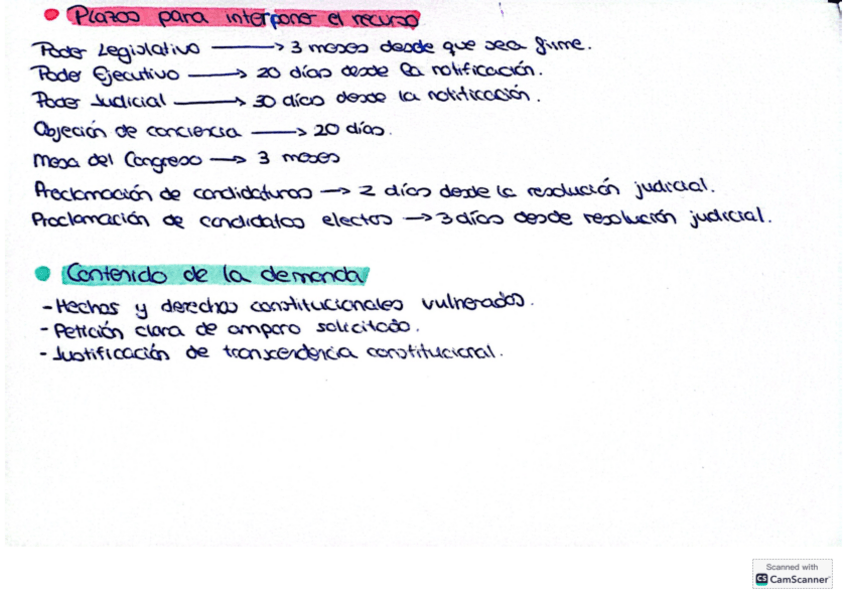 Plazos para interponer el recurso
Poder Legislativo → 3 meses desde que sea firme.
Poder Ejecutivo → 20 días desde la notificación.
Poder Judicial → 30 días desde la notificación.
Objeción de conciencia → 20 días.
Mesa del Congreso → 3 meses
Proclamación de candidaturas → 2 días desde la resolución judicial.
Proclamación de candidatos electos → 3 días desde resolución judicial.
Contenido de la demanda
- Hechos y derechos constitucionales vulnerados.
- Petición clara de amparo solicitado.
- Justificación de transcendencia constitucional.
Scanned with
CS CamScanner